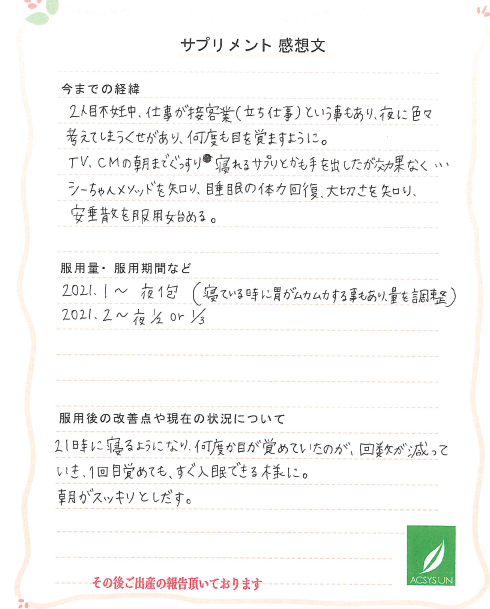 サプリメント 感想文
今までの経緯
2人目不妊中、仕事が接客業(立ち仕事)という事もあり、夜に色々
考えてしまうくせがあり、何度も目を覚ますように。
TV、CMの朝までぐっすり寝れるサプリとかも手を出したが効果なく…
シーちゃんメソッドを知り、睡眠の体力回復、大切さを知り、
安垂散を服用始める。
服用量・服用期間など
2021.1〜 夜1包 (寝ている時に胃がムカムカする事もあり、量を調整)
2021.2〜夜1/2 or 1/3
服用後の改善点や現在の状況について
21時に寝るようになり、何度か目が覚めていたのが、回数が減って
いき、1回目覚めても、すぐ入眠できる様に。
朝がスッキリとしだす。
ACSYSUN
その後ご出産の報告頂いております